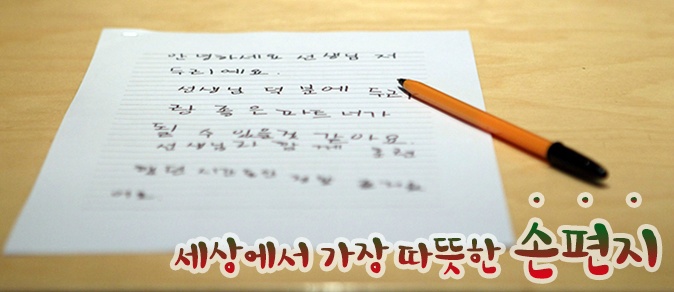 안녕하세요 선생님 저
두리예요.
선생님 덕분에 두리
랑 좋은 파트너가
될 수 있을것 같아요.
선생님과 함께 훈련
했던 시간동안
세상에서 가장 따뜻한 손편지